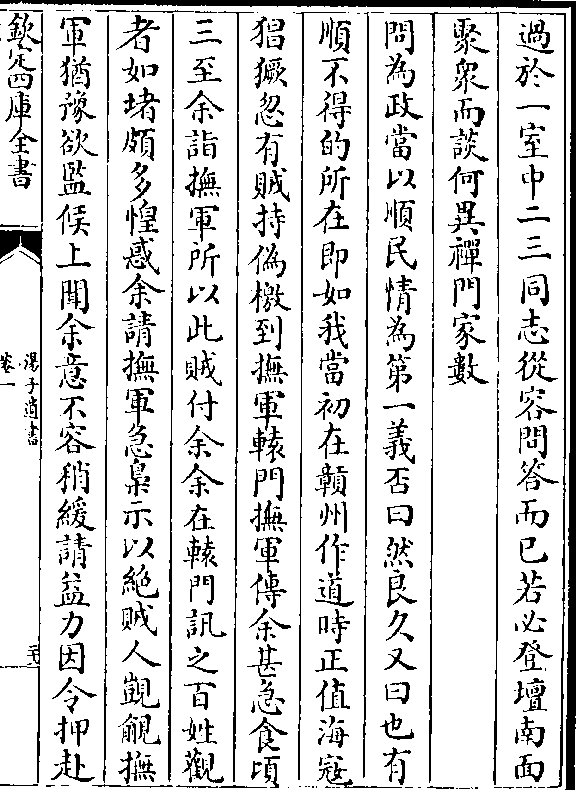 過於一室中二三同志從容問答而已若必登壇南面
聚衆而談何異禪門家數
問為政當以順民情為第一義否曰然良久又曰也有
順不得的所在即如我當初在贛州作道時正值海寇
猖獗忽有賊持偽檄到撫軍轅門撫軍傳余甚急食頃
三至余詣撫軍所以此賊付余余在轅門訊之百姓觀
者如堵頗多惶惑余請撫軍急梟示以絶賊人覬覦撫
軍猶豫欲監候上聞余意不容稍緩請益力因令押赴
欽定四庫全書
湯子遺書
卷一